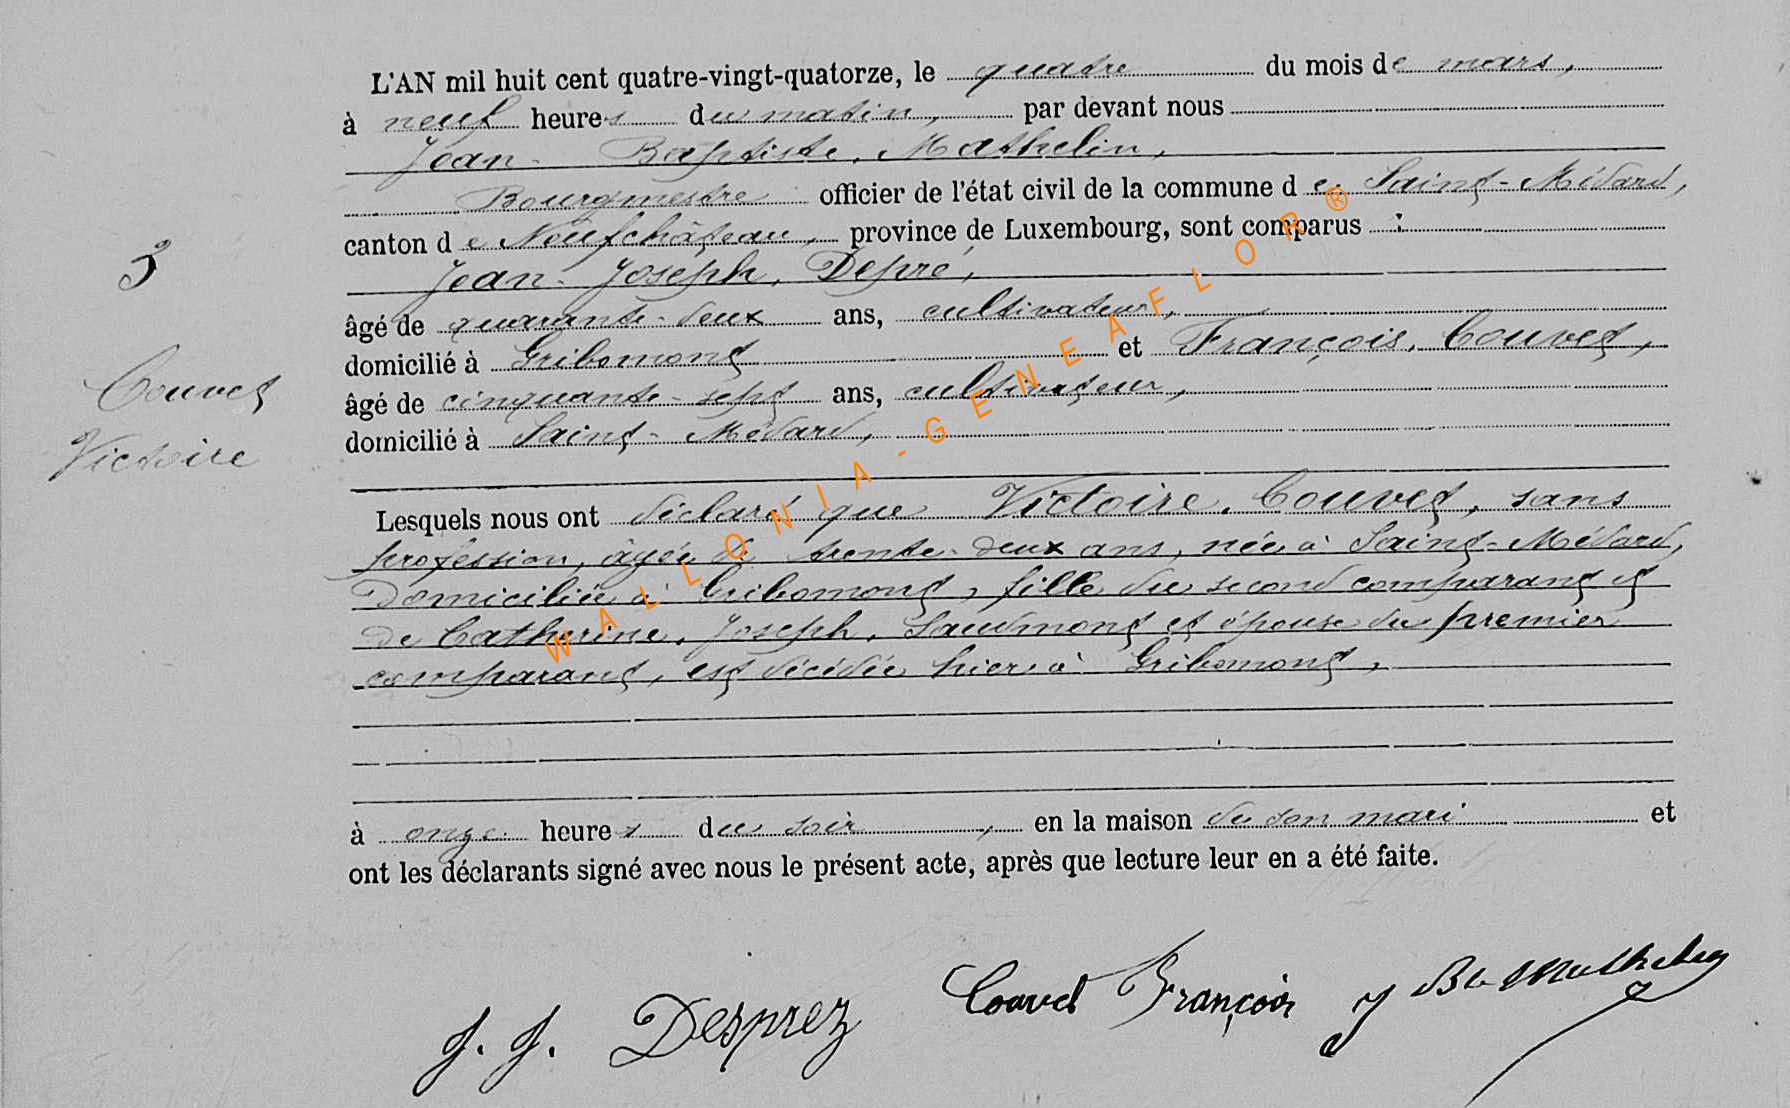 L'AN mil huit cent quatre-vingt-quatorze, le quatre du mois de mars,
à neuf heures du matin, par devant nous
Jean-Baptiste, Mathelin,
Bourgmestre officier de l'état civil de la commune de Saint-Médard,
canton de Neufchâteau, province de Luxembourg, sont comparus :
Jean-Joseph, Depré,
âgé de quarante-deux ans, cultivateur,
domicilié à Gribomont et François, Couvet,
âgé de cinquante-sept ans, cultivateur,
domicilié à Saint-Médard,
3
Couvet
Victoire
Lesquels nous ont déclaré que Victoire, Couvet, sans
profession, âgée de trente-deux ans, née à Saint-Médard,
domiciliée à Gribomont, fille du second comparant et
de Catherine, Joseph, Saudmont et épouse du premier
comparant, est décédée hier à Gribomont,
à onze heures du soir, en la maison de son mari et
ont les déclarants signé avec nous le présent acte, après que lecture leur en a été faite.
J. J. Desprez Couvet François J Bte Mathelin
WALLONIA-GENEAFLOR®